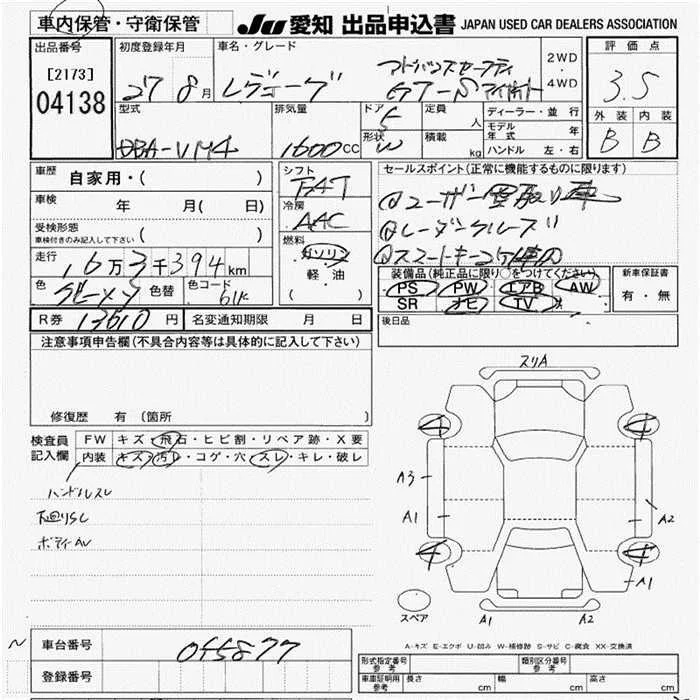 車内保管・守衛保管
JU 愛知 出品申込書 JAPAN USED CAR DEALERS ASSOCIATION
出品番号
[2173]
04138
初度登録年月
27 8月
車名・グレード
レヴォーグ
アドバンスセーフティ
GT-S アイサイト
2WD
・
4WD
評価点
3.5
外装 内装
B B
型式
DBA-VM4
排気量
1600cc
ドア 5
形状 W
定員 人
積載 kg
ディーラー・並行
モデル年式 年
ハンドル 左・右
車歴 自家用・( )
車検 年 月( 日)
受検形態
車検付きのみ記入して下さい ( )
走行 16万3千394km
色 グレーメ 色替 色コード 61K
シフト FAT
冷房 AAC
燃料
ガソリン
軽・油
( )
セールスポイント(正常に機能するものに限ります)
①ユーザー買取り車
②レーダークルーズ
③スマートキー
装備品(純正品に限り○をつけてください)
PS PW エアB AW
SR ナビ TV 革
新車保証書
有・無
後日品
R券 13610円 名変通知期限 月 日
注意事項申告欄(不具合内容等は具体的に記入して下さい)
修復歴 有(箇所 )
検査員記入欄
FW キズ・飛石・ヒビ割・リペア跡・X要
内装 キズ・汚レ・コゲ・穴・スレ・キレ・破レ
ハンドルスレ
下廻りSC
ボディAU
スリA
4 4
A3
A1 A2
4 4
A1
スペア
A1 A2
A-キズ E-エクボ U-凹み W-補修跡 S-サビ C-腐食 XX-交換済
車台番号 055877
登録番号
形式指定番号 参考
類別区分番号 参考
車庫証明用 参考 長さ cm 幅 cm 高さ cm